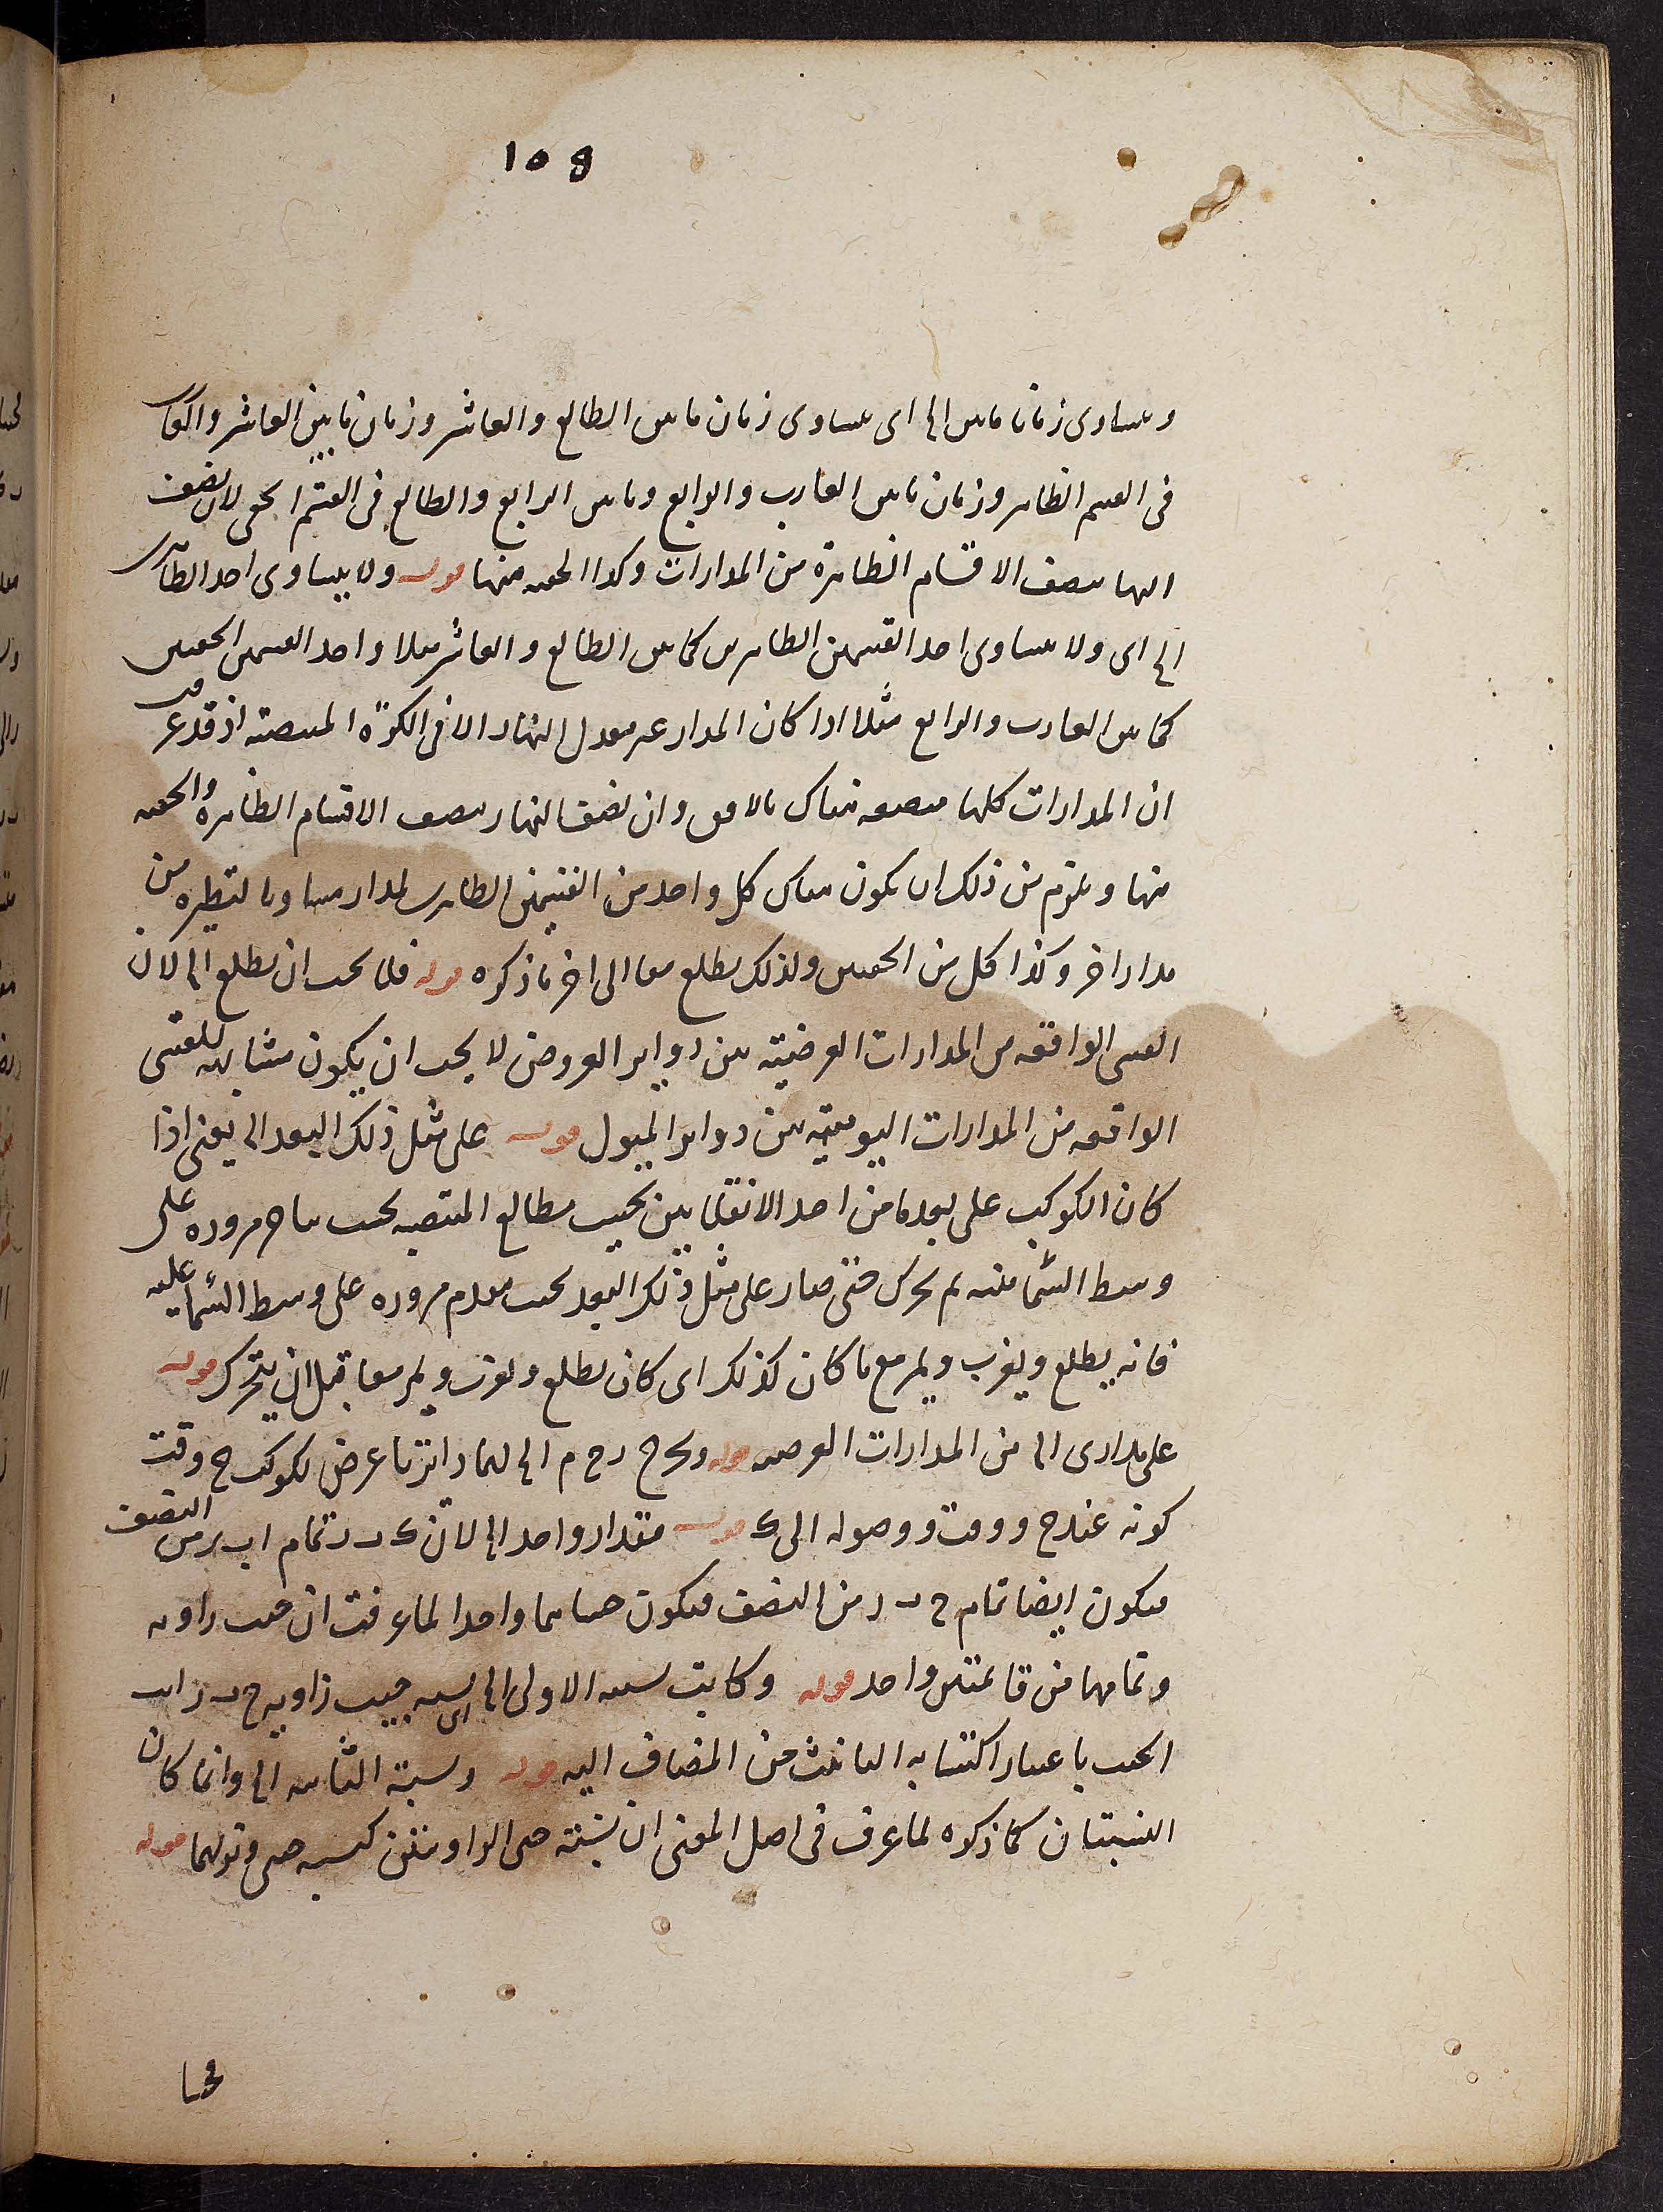 108
ويساوى زمانا مابين الخ اى يساوى زمان مابين الطالع والعاشر وزمان مابين العاشر والغارب
فى القسم الظاهر وزمان مابين الغارب والرابع ومابين الرابع والطالع فى القسم الخفى لان نصف
النهار ينصف الاقسام الظاهرة من المدارات وكذا الخفية منها قوله ولا يساوى احد الظاهرين
الخ اى ولا يساوى احد القسمين الظاهرين كمابين الطالع والعاشر مثلا واحد القسمين الخفيين
كمابين الغارب والرابع مثلا اذا كان المدار غير معدل النهار الا فى الكرة المنتصبة اذ قد عرف
ان المدارات كلها منصفة هناك بالافق وان نصف النهار ينصف الاقسام الظاهرة والخفية
منها ويلزم من ذلك ان يكون هناك كل واحد من القسمين الظاهرين لمدار مساويا لنظيره من
مدار اخر وكذا كل من الخفيين ولذلك يطلع معا الى اخر ماذكره قوله فلا يجب ان يطلع الخ لان
القسى الواقعة من المدارات العرضية بين دواير العروض لا يجب ان يكون مشابهة للقسى
الواقعة من المدارات اليومية بين دواير الميول قوله على مثل ذلك البعد الخ يعنى اذا
كان الكوكب على بعد ما من احد الانقلابين بحيث مطالع المنتصبة بحسب تاخر مروره على
وسط السما منه ثم تحرك حتى صار على مثل ذلك البعد بحيث تقدم مروره على وسط السما عليه
فانه يطلع ويغرب ويمر مع ما كان كذلك اى كان يطلع ويغرب ويمر معا قبل ان يتحرك قوله
على مدارى الخ من المدارات العرضية قوله ونخرج ر ح م الخ لانهما دائرتا عرض لكوكب ح وقت
كونه عند ح ووقت وصوله الى ك قوله مقدار واحد الخ لان ك ب ر تمام ا ب ر من النصف
فيكون ايضا تمام ح ب ر من النصف فيكون جيباهما واحدا لما عرفت ان جيب زاوية
وتمامها من قائمتين واحد قوله وكانت نسبة الاولى الخ اى نسبة جيب زاوية ح ب ر انث
الجيب باعتبار اكتسابه التانيث من المضاف اليه قوله ونسبة الثانية الخ وانما كان
النسبتان كما ذكره لما عرف فى اصل المغنى ان نسبة جيبى الزاويتين كنسبة جيبى وتريهما قوله
فما